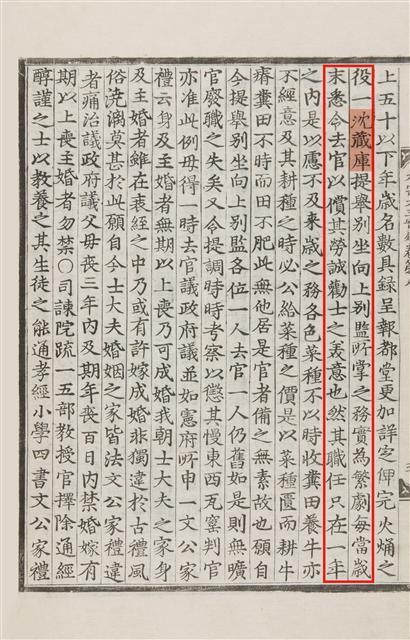 上五十以下年歲名數具録呈報都堂更加詳定俾完火㷁之
役一沈藏庫提舉別坐向上別監所掌之務實為繁劇每當歳
末悉令去官以償其勞誠勸士之義意也然其職任只在一年
之内是以慮不及来歳之務各色菜種不以時收糞田養牛亦
不經意及其耕種之時必公給菜種之價是以菜種匱而耕牛
瘠糞田不時而田不肥此無他居是官者備之無素故也願自
今提舉別坐向上別監各位一人去官一人仍舊如是則無曠
官廢職之失矣又令提調時時考察以懲其慢東西瓦窰判官
亦准此例毋得一時去官議政府議並如憲府所申一文公家
禮云身及主婚者無期以上喪乃可成婚我朝士大夫之家身
及主婚者雖在衰絰之中乃或有許嫁成婚非獨違於古禮風
俗澆漓莫甚於此願自今士大夫婚姻之家皆法文公家禮違
者痛治議政府議父母喪三年内及期年喪百日内禁婚嫁有
期以上喪主婚者勿禁○司諫院疏一五部教授官擇除通經
醇謹之士以教養之其生徒之能通孝經小學四書文公家禮